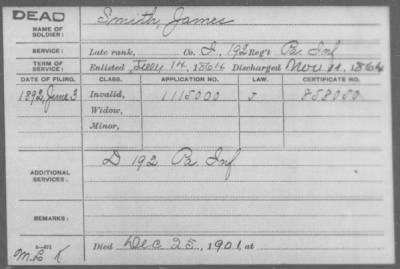 DEAD
NAME OF SOLDIER: Smith, James
SERVICE: Late rank, Co. I, 192 Reg't Pa. Inf
TERM OF SERVICE: Enlisted July 14, 1864 Discharged Nov 11, 1864
DATE OF FILING. CLASS. APPLICATION NO. LAW. CERTIFICATE NO.
1892, June 3 Invalid, 1115000 J 858080
Widow,
Minor,
ADDITIONAL SERVICES: D 192 Pa. Inf
REMARKS:
Died Dec 25, 1901, at